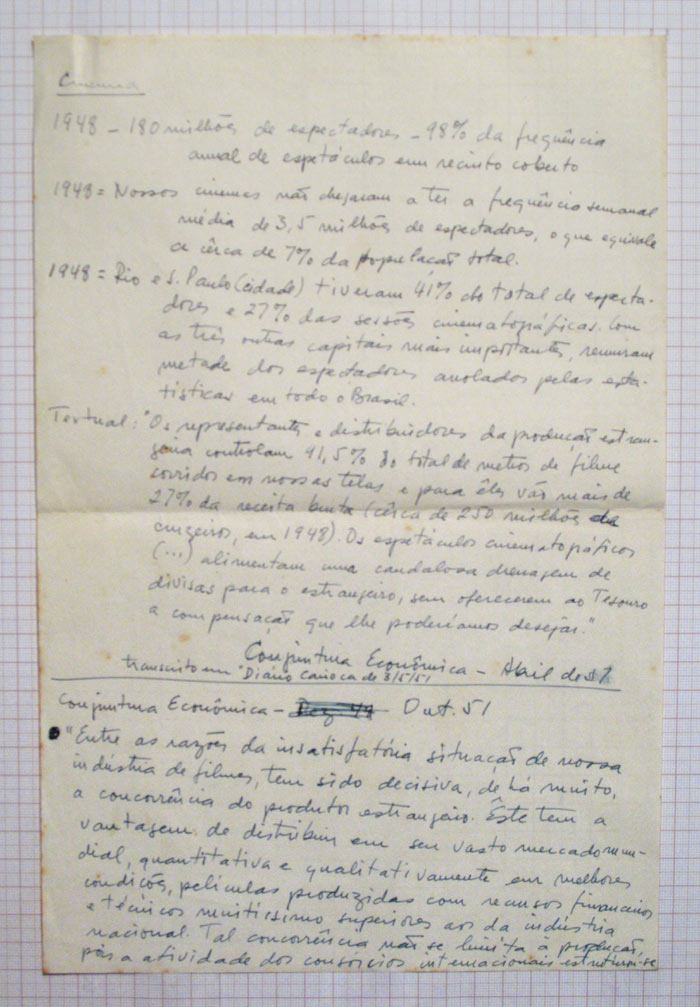 Cinema
1948 - 180 milhões de espectadores - 98% da frequência
anual de espetáculos em recinto coberto
1948 = Nossos cinemas não chegaram a ter a frequência semanal
média de 3,5 milhões de espectadores, o que equivale
a cêrca de 7% da população total.
1948 = Rio e S. Paulo (cidade) tiveram 41% do total de especta-
dores e 27% das sessões cinematográficas. Com
as três outras capitais mais importantes, reuniram
metade dos espectadores anotados pelas esta-
tísticas em todo o Brasil.
Textual: "Os representantes e distribuidores da produção estran-
geira controlam 91,5% do total de metros de filme
corridos em nossas telas e para êles vão mais de
27% da receita bruta (cêrca de 250 milhões de
cruzeiros, em 1948). Os espetáculos cinematográficos
(...) alimentam uma caudalosa drenagem de
divisas para o estrangeiro, sem oferecerem ao Tesouro
a compensação que lhe poderíamos desejar."
Conjuntura Econômica - Abril de 51
transcrito em "Diário Carioca de 3/5/51
Conjuntura Econômica - Dez. 49 Out. 51
"Entre as razões da insatisfatória situação de nossa
indústria de filmes, tem sido decisiva, de há muito,
a concorrência do produtor estrangeiro. Êste tem a
vantagem de distribuir em seu vasto mercado mun-
dial, quantitativa e qualitativamente em melhores
condições, películas produzidas com recursos financeiros
e técnicos muitíssimo superiores aos da indústria
nacional. Tal concorrência não se limita à produção,
pois a atividade dos consórcios internacionais